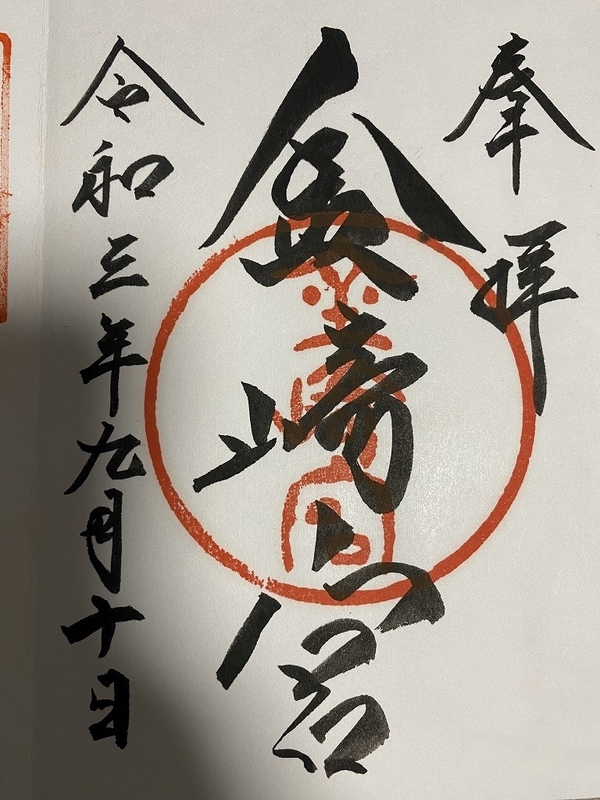 奉拝
金崎宮
令和三年九月十日